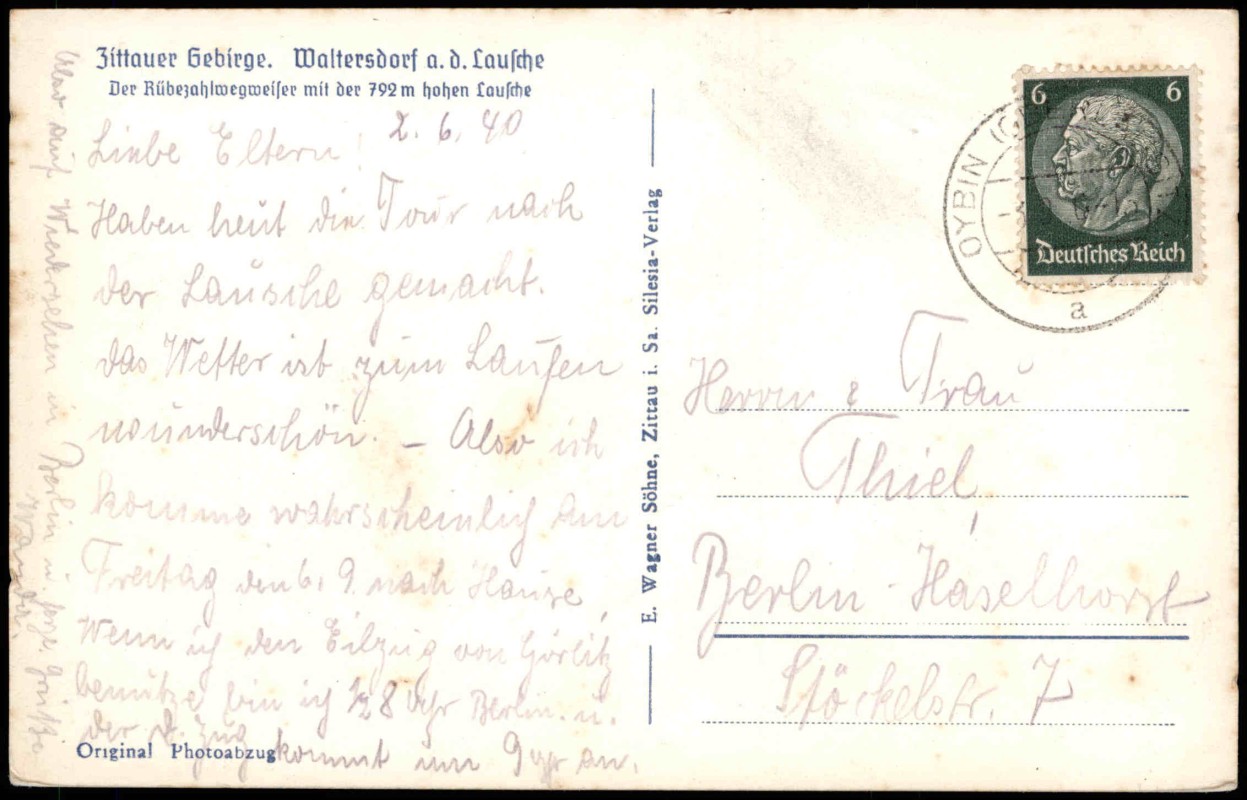 Zittauer Gebirge. Waltersdorf a. d. Lausche
Der Rübezahlwegweiser mit der 792 m hohen Lausche
2. 6. 40
Liebe Eltern!
Haben heut die Tour nach
der Lausche gemacht.
das Wetter ist zum Laufen
wunderschön. – Also ich
komme wahrscheinlich am
Freitag den 6. 9. nach Hause,
Wenn ich den Eilzug von Görlitz
benutze bin ich ½ 8 Uhr Berlin. u.
der D. Zug kommt um 9 Uhr an.
Also auf Wiedersehen in Berlin u.
Original Photoabzug
E. Wagner Söhne, Zittau i. Sa. Silesia-Verlag
6 6
Deutsches Reich
OYBIN
a
Herrn & Frau
Thiel,
Berlin-Haselhorst
Stöckelstr. 7